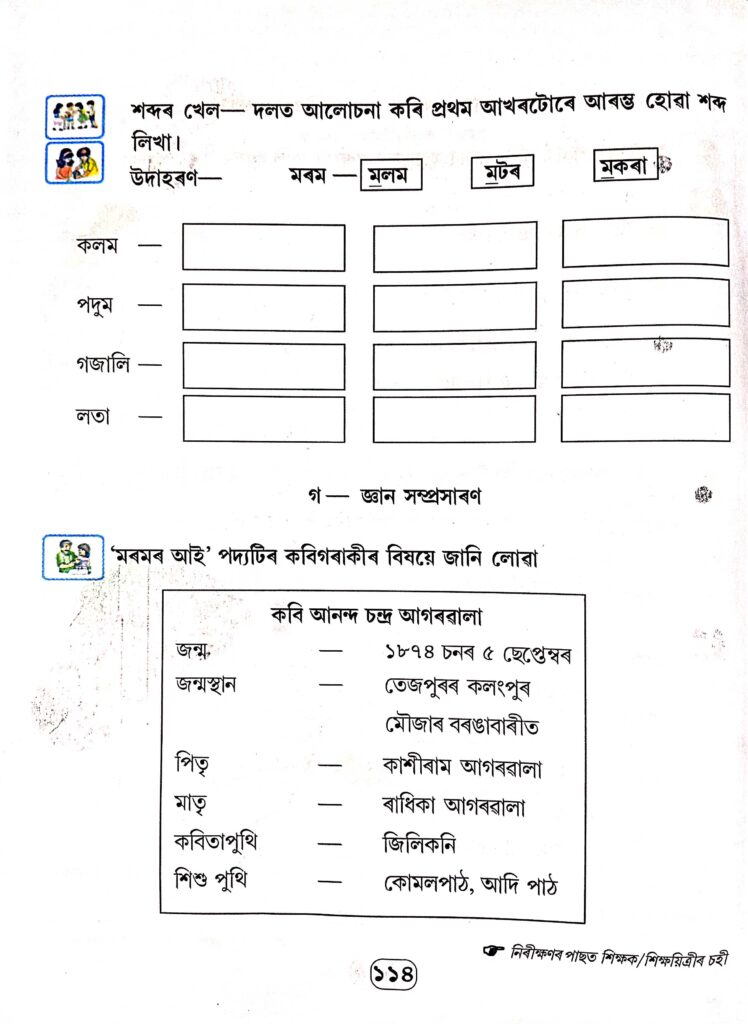 শব্দৰ খেল— দলত আলোচনা কৰি প্ৰথম আখৰটোৰে আৰম্ভ হোৱা শব্দ
লিখা।
উদাহৰণ— মৰম — মলম মটৰ মকৰা
কলম —
পদুম —
গজালি —
লতা —
গ — জ্ঞান সম্প্ৰসাৰণ
‘মৰমৰ আই’ পদ্যটিৰ কবিগৰাকীৰ বিষয়ে জানি লোৱা
কবি আনন্দ চন্দ্ৰ আগৰৱালা
জন্ম — ১৮৭৪ চনৰ ৫ ছেপ্তেম্বৰ
জন্মস্থান — তেজপুৰৰ কলংপুৰ
মৌজাৰ বৰঙাবাৰীত
পিতৃ — কাশীৰাম আগৰৱালা
মাতৃ — ৰাধিকা আগৰৱালা
কবিতাপুথি — জিলিকনি
শিশু পুথি — কোমলপাঠ, আদি পাঠ
নিৰীক্ষণৰ পাছত শিক্ষক/শিক্ষয়িত্ৰীৰ চহী
১১৪